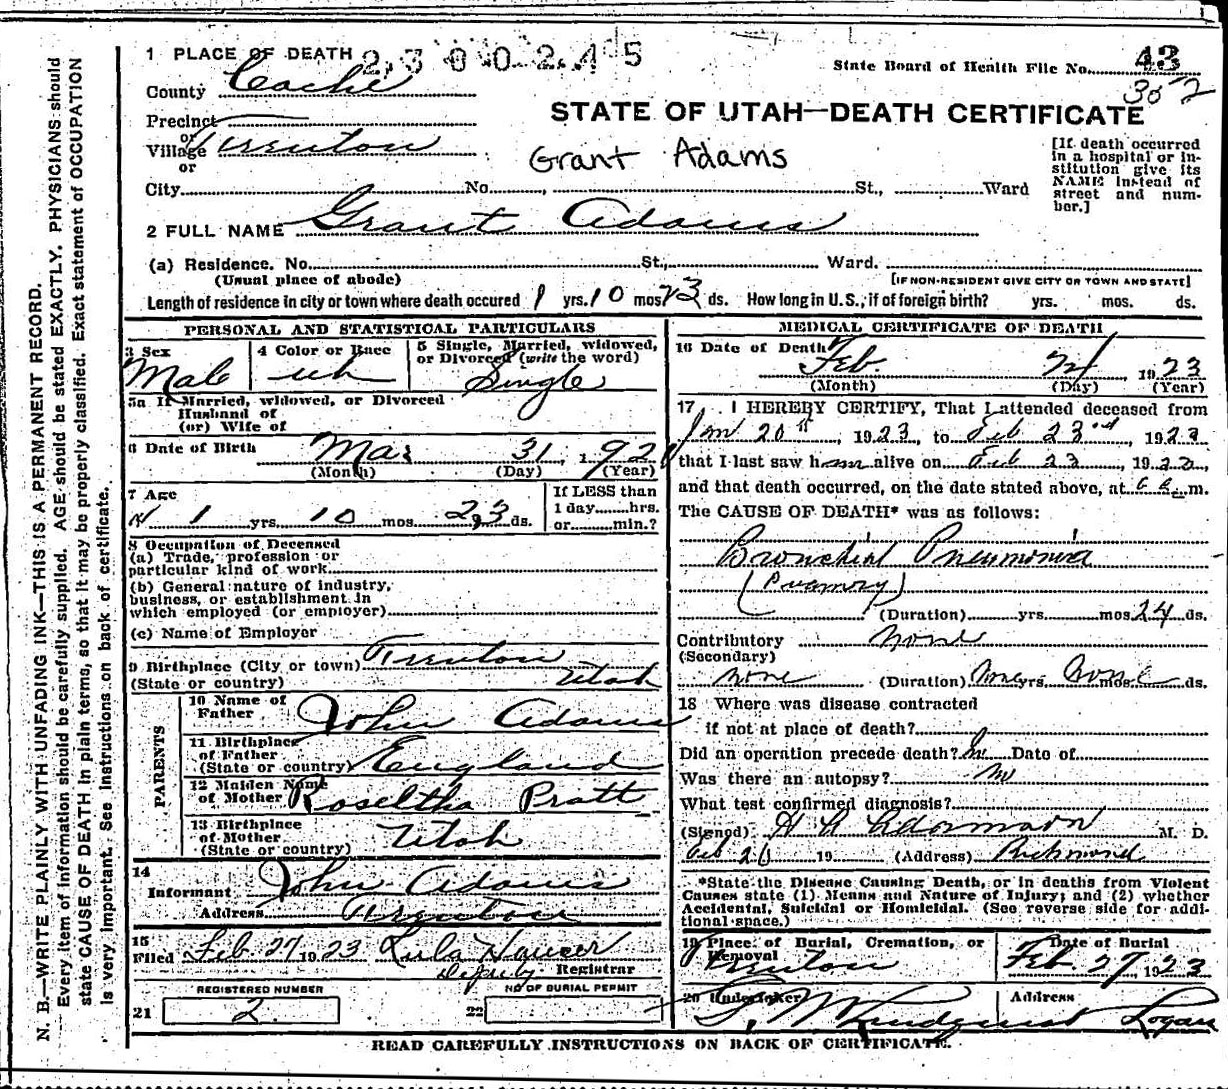 N. B.—WRITE PLAINLY WITH UNFADING INK—THIS IS A PERMANENT RECORD.
Every item of information should be carefully supplied. AGE should be stated EXACTLY. PHYSICIANS should
state CAUSE OF DEATH in plain terms, so that it may be properly classified. Exact statement of OCCUPATION
is very important. See instructions on back of certificate.
1 PLACE OF DEATH 2300245
State Board of Health File No. 43
302
County Cache
STATE OF UTAH—DEATH CERTIFICATE
Precinct
or
Village Trenton
or
Grant Adams
[If death occurred
in a hospital or in-
stitution give its
NAME instead of
street and num-
ber.]
City No. St., Ward
2 FULL NAME Grant Adams
(a) Residence. No. St., Ward.
(Usual place of abode) [IF NON-RESIDENT GIVE CITY OR TOWN AND STATE]
Length of residence in city or town where death occured 1 yrs. 10 mos 23 ds. How long in U.S., if of foreign birth? yrs. mos. ds.
PERSONAL AND STATISTICAL PARTICULARS
3 Sex
Male
4 Color or Race
wh
5 Single, Married, widowed,
or Divorced (write the word)
Single
5a If Married, widowed, or Divorced
Husband of
(or) Wife of
6 Date of Birth Mar 31, 192
(Month) (Day) (Year)
7 Age
1 yrs. 10 mos. 23 ds.
If LESS than
1 day......hrs.
or......min.?
8 Occupation of Deceased
(a) Trade, profession or
particular kind of work
(b) General nature of industry,
business, or establishment in
which employed (or employer)
(c) Name of Employer
9 Birthplace (City or town) Trenton
(State or country) Utah
PARENTS
10 Name of
Father John Adams
11 Birthplace
of Father
(State or country) England
12 Maiden Name
of Mother Roseltha Pratt
13 Birthplace
of Mother
(State or country) Utah
14
Informant John Adams
Address Trenton
15
Filed Feb. 27 1923 Lula
Deputy Registrar
REGISTERED NUMBER
21 2
NO OF BURIAL PERMIT
22
MEDICAL CERTIFICATE OF DEATH
16 Date of Death Feb. 24 1923
(Month) (Day) (Year)
17 I HEREBY CERTIFY, That I attended deceased from
Jan 20th, 1923, to Feb 23rd, 1923
that I last saw him alive on Feb 23, 1923,
and that death occurred, on the date stated above, at 6 a.m.
The CAUSE OF DEATH* was as follows:
Bronchial Pneumonia
(Primary)
(Duration) yrs. mos. 24 ds.
Contributory none
(Secondary)
none (Duration) none yrs. none mos. ds.
18 Where was disease contracted
if not at place of death?
Did an operation precede death? no Date of
Was there an autopsy? no
What test confirmed diagnosis?
(Signed) M. D.
Feb 26 19 (Address) Richmond
*State the Disease Causing Death, or in deaths from Violent
Causes state (1) Means and Nature of Injury; and (2) whether
Accidental, Suicidal or Homicidal. (See reverse side for addi-
tional space.)
19 Place of Burial, Cremation, or
Removal
Trenton
Date of Burial
Feb. 27, 1923
20 Undertaker Address
Logan
READ CAREFULLY INSTRUCTIONS ON BACK OF CERTIFICATE.